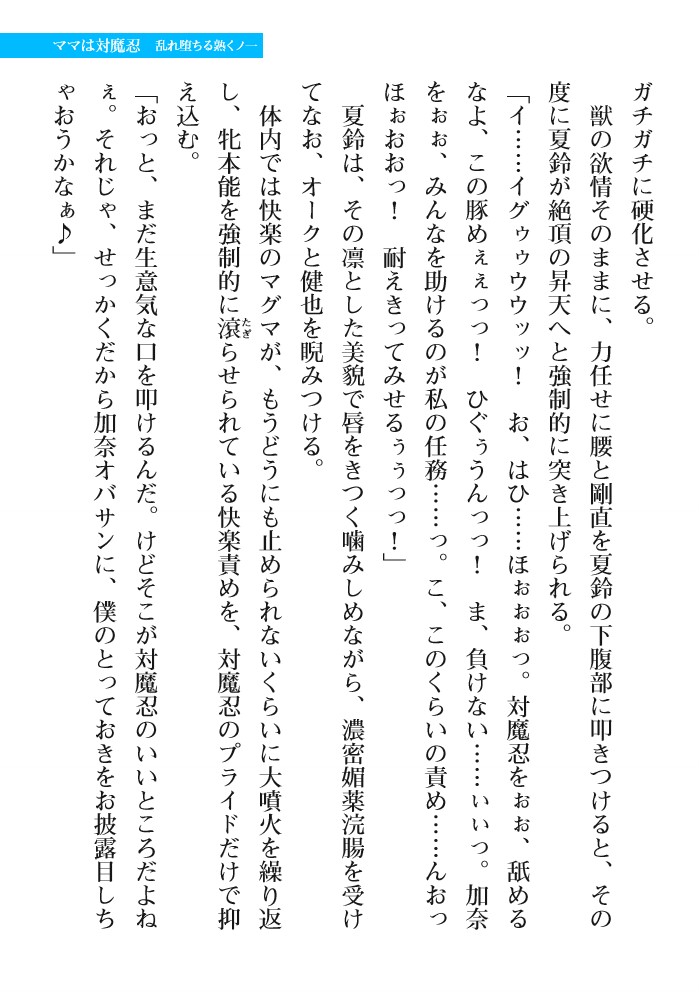 ママは対魔忍　乱れ堕ちる熟くノ一
ガチガチに硬化させる。
　獣の欲情そのままに、力任せに腰と剛直を夏鈴の下腹部に叩きつけると、その
度に夏鈴が絶頂の昇天へと強制的に突き上げられる。
「イ……イグゥゥウウッッ！　お、はひ……ほぉぉぉっ。対魔忍をぉぉ、舐める
なよ、この豚めぇぇっっ！　ひぐぅうんっっ！　ま、負けない……ぃぃっ。加奈
をぉぉ、みんなを助けるのが私の任務……っ。こ、このくらいの責め……んおっ
ほぉおおっ！　耐えきってみせるぅぅっっ！」
　夏鈴は、その凛とした美貌で唇をきつく噛みしめながら、濃密媚薬浣腸を受け
てなお、オークと健也を睨みつける。
　体内では快楽のマグマが、もうどうにも止められないくらいに大噴火を繰り返
し、牝本能を強制的に滾たぎらせられている快楽責めを、対魔忍のプライドだけで抑
え込む。
「おっと、まだ生意気な口を叩けるんだ。けどそこが対魔忍のいいところだよね
ぇ。それじゃ、せっかくだから加奈オバサンに、僕のとっておきをお披露目しち
ゃおうかなぁ♪」